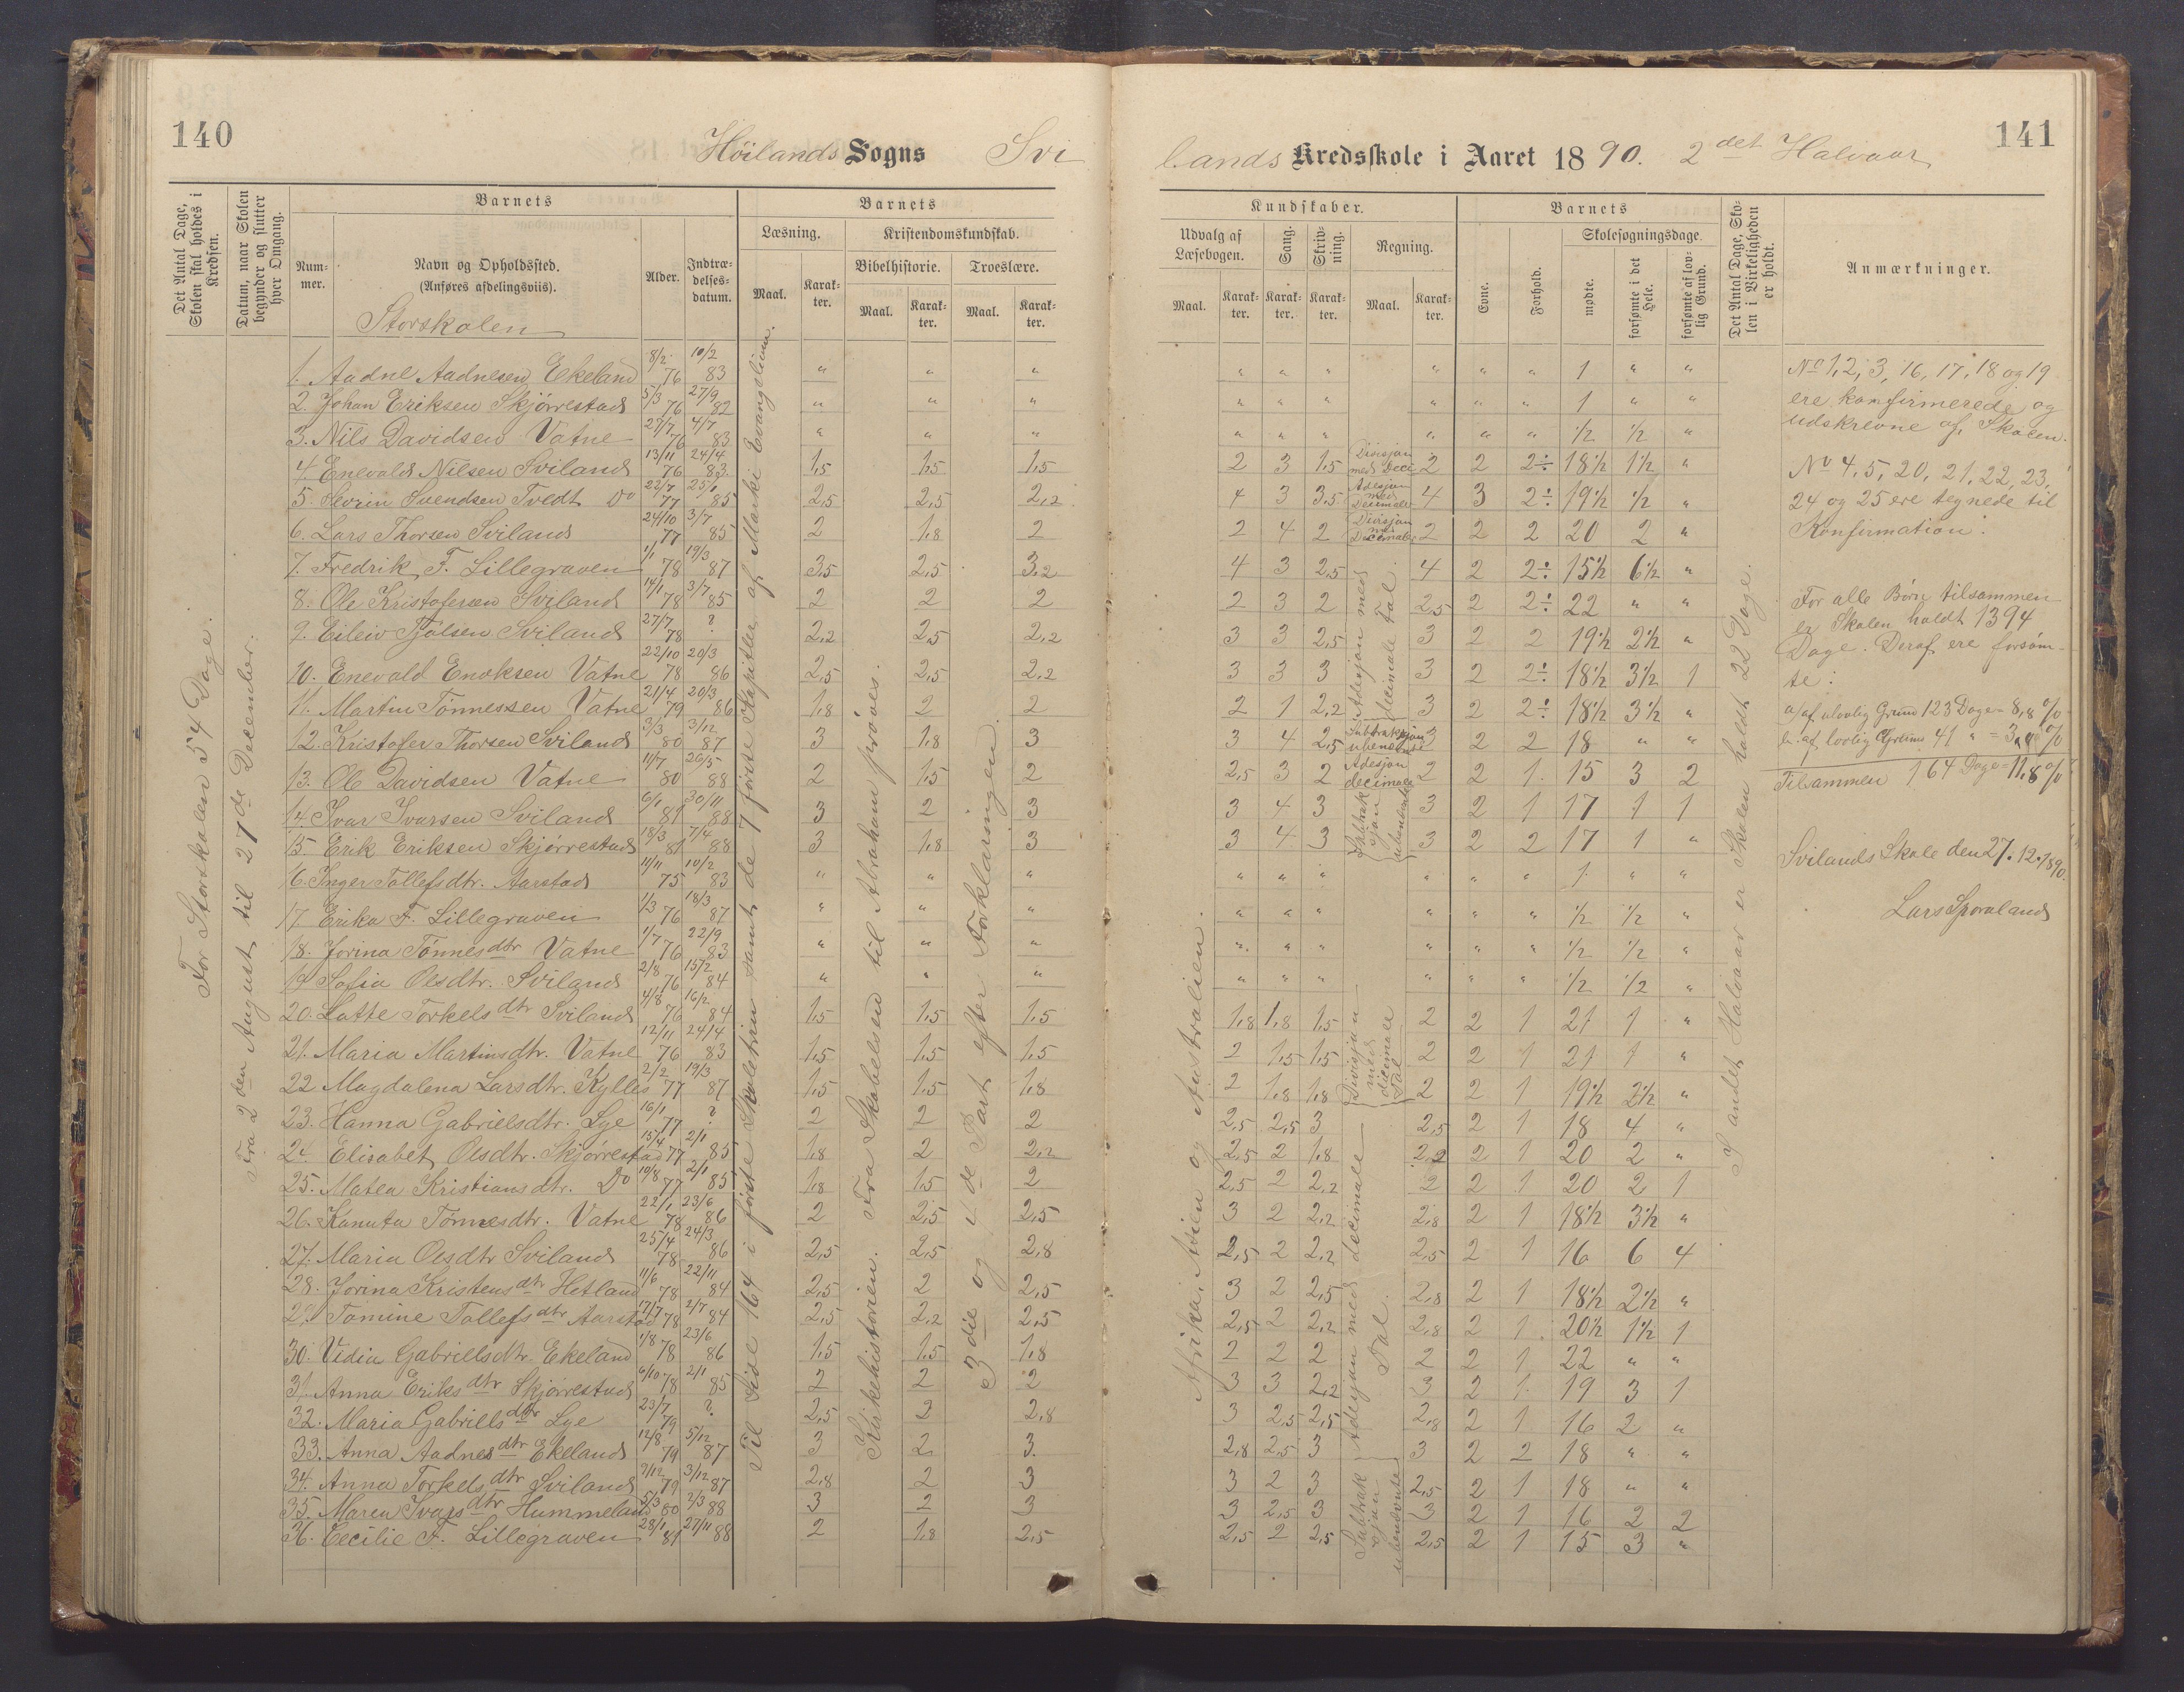 140
Höilands Sogns Svi
Det Antal Dage, Skolen skal holdes i Kredsen.
Datum, naar Skolen begynder og slutter hver Omgang.
Barnets
Barnets
Num-mer.
Navn og Opholdssted.
(Anføres afdelingsviis).
Storskolen
Alder.
Indtræ-delses-datum.
Læsning.
Kristendomskundskab.
Maal.
Karak-ter.
Bibelhistorie.
Troeslære.
Maal.
Karak-ter.
Maal.
Karak-ter.
For Storskolen 54 Dage.
Fra 2den August til 27de December.
Til Side 164 i første Skoletrin samt de 7 første Kapitler af Marki Evangelium.
Kirkehistorien. Fra Skabelsen til Abraham prøves.
3die og 4de Part efter Forklaringen.
1. Aadne Aadnesen Ekeland 8/2 76 10/2 83 " " "
2. Johan Eriksen Skjørrestad 5/3 76 27/9 82 " " "
3. Nils Davidsen Vatne 27/7 76 4/7 83 " " "
4. Enevald Nilsen Sviland 13/11 76 24/4 83 1,5 1,5 1,5
5. Sevrin Svendsen Tvedt Do 22/7 77 25/1 85 2,5 2,5 2,2
6. Lars Thorsen Sviland 24/10 77 3/7 85 2 1,8 2
7. Fredrik F. Lillegraven 1/1 78 19/3 87 3,5 2,5 3,2
8. Ole Kristofersen Sviland 14/1 78 3/7 85 2 2 2
9. Eileiv Tjølsen Sviland 27/7 78 ? 2,2 2,5 2,2
10. Enevald Enoksen Vatne 22/10 78 20/3 86 2,5 2,5 2,2
11. Martin Tönnessen Vatne 21/4 79 20/3 86 1,8 2 2
12. Kristofer Thorsen Sviland 3/3 80 3/12 87 3 1,8 3
13. Ole Davidsen Vatne 11/7 80 26/5 88 2 1,5 2
14. Ivar Ivarsen Sviland 6/1 81 30/11 88 3 2 3
15. Erik Eriksen Skjørrestad 18/3 81 7/4 88 3 1,8 3
16. Inger Tollefsdtr. Aarstad 11/11 75 10/2 83 " " "
17. Erika F. Lillegraven 1/3 76 18/3 87 " " "
18. Jorina Tönnesdtr Vatne 1/7 76 22/9 83 " " "
19 Sofia Olsdtr. Sviland 2/8 76 15/2 84 " " "
20. Lotte Torkelsdtr Sviland 4/8 76 16/2 84 1,5 1,5 1,5
21. Maria Martinsdtr. Vatne 12/11 76 24/4 83 1,5 1,5 1,5
22 Magdalena Larsdtr. Kylles 2/2 77 19/3 87 1,5 1,5 1,8
23. Hanna Gabrielsdtr. Lye 16/1 77 ? 2 2 2
24. Elisabet Olsdtr. Skjørrestad 15/4 77 2/1 85 1,8 2 2,2
25. Matea Kristiansdtr. Do 10/8 77 2/1 85 1,8 1,5 2
26. Kanuta Tönnesdtr. Vatne 22/1 78 23/6 86 2 2,5 2,5
27. Maria Olsdtr Sviland 25/4 78 24/3 86 2,5 2,5 2,8
28. Jorina Kristensdtr Hetland 11/6 78 22/11 84 2,5 2 2,5
29 Tomine Tollefsdtr Aarstad 17/7 78 2/7 84 2,5 2,2 2,5
30. Vidia Gabrielsdtr. Ekeland 1/8 78 23/6 86 1,5 1,5 1,8
31. Anna Eriksdtr Skjørrestad 6/10 78 2/1 85 2 2 2
32. Maria Gabriellsdtr Lye 23/7 79 ? 2,5 2 2,8
33. Anna Aadnesdtr Ekeland 12/8 79 5/12 87 3 2 3
34. Anna Torkelsdtr Sviland 7/12 79 3/12 87 2,8 2 3
35. Maren Ivarsdtr Hummeland 5/3 80 2/3 88 3 2 3
36. Cecilie F. Lillegraven 28/1 81 27/11 88 2 1,8 2,5
141
lands Kredsskole i Aaret 1890. 2det Halvaar
Kundskaber.
Barnets
Udvalg af Læsebogen.
Sang.
Skriv-ning.
Regning.
Maal.
Karak-ter.
Karak-ter.
Karak-ter.
Maal.
Karak-ter.
Evne.
Forhold.
Skolesøgningsdage.
mødte.
forsømte i det Hele.
forsømte af lov-lig Grund.
Det Antal Dage, Sko-len i Virkeligheden er holdt.
Anmærkninger.
Afrika, Asien og Australien.
I andet Halvaar er Skolen holdt 22 Dage.
" " " " " " 1 " "
" " " " " " 1 " "
" " " " " " 1/2 1/2 "
2 3 1,5 Divisjon med Deci 2 2 2÷ 18 1/2 1 1/2 "
4 3 3,5 Adesjon med Decimale 4 3 2÷ 19 1/2 1/2 "
2 4 2 Divisjon med Decimaler 2 2 2 20 2 "
Adesjon med decimale Tal.
4 3 2,5 4 2 2÷ 15 1/2 6 1/2 "
2 3 2 2,5 2 2÷ 22 " "
3 3 2,5 3 2 2 19 1/2 2 1/2 "
3 3 3 3 2 2÷ 18 1/2 3 1/2 1
2 1 2,2 3 2 2÷ 18 1/2 3 1/2 "
3 4 2,5 Subtraksjon ubenævnte 3 2 2 18 " "
2,5 3 2 Adesjon decimale 2 2 1 15 3 2
Subtraksjon ubenævnte
3 4 3 3 2 1 17 1 1
3 4 3 3 2 2 17 1 "
" " " " " " 1 " "
" " " " " " 1/2 1/2 "
" " " " " " 1/2 1/2 "
" " " " " " 1/2 1/2 "
Divisjon med decimale Tal
1,8 1,8 1,5 2 2 1 21 1 "
2 1,5 1,5 2 2 1 21 1 "
2 1,8 1,8 2 2 1 19 1/2 2 1/2 "
Adesjon med decimale Tal.
2,5 2,5 3 2,5 2 1 18 4 "
2,5 2 1,8 2,2 2 1 20 2 "
2,5 2 2,2 2 2 1 20 2 1
3 2 2,2 2,8 2 1 18 1/2 3 1/2 "
2,5 2 2,2 2,5 2 1 16 6 4
3 2 2,5 2,8 2 1 18 1/2 2 1/2 "
2,5 2 2,2 2,8 2 1 20 1/2 1 1/2 1
2 2 2 2 2 1 22 " "
3 3 2,2 3 2 1 19 3 1
3 2,5 2,5 2,8 2 1 16 2 "
2,8 2,5 3 3 2 2 18 " "
Subtraksjon ubenævnte
3 2 3 2,5 2 1 18 " "
3 2,5 3 3 2 1 16 2 2
2,5 2 2,5 2,5 2 1 15 3 "
No 1, 2, 3, 16, 17, 18 og 19
ere konfirmerede og
udskrevne af Skolen.
No 4, 5, 20, 21, 22, 23,
24 og 25 ere tegnede til
Konfirmation.
For alle Børn tilsammen
er Skolen holdt 1394
Dage. Deraf ere forsøm-
te:
a/ af ulovlig Grund 123 Dage = 8,8 %
b. af lovlig Grund 41 " = 3, %
Tilsammen 164 Dage = 11,8 %
Svilands Skole den 27. 12. 1890.
Lars Sporaland